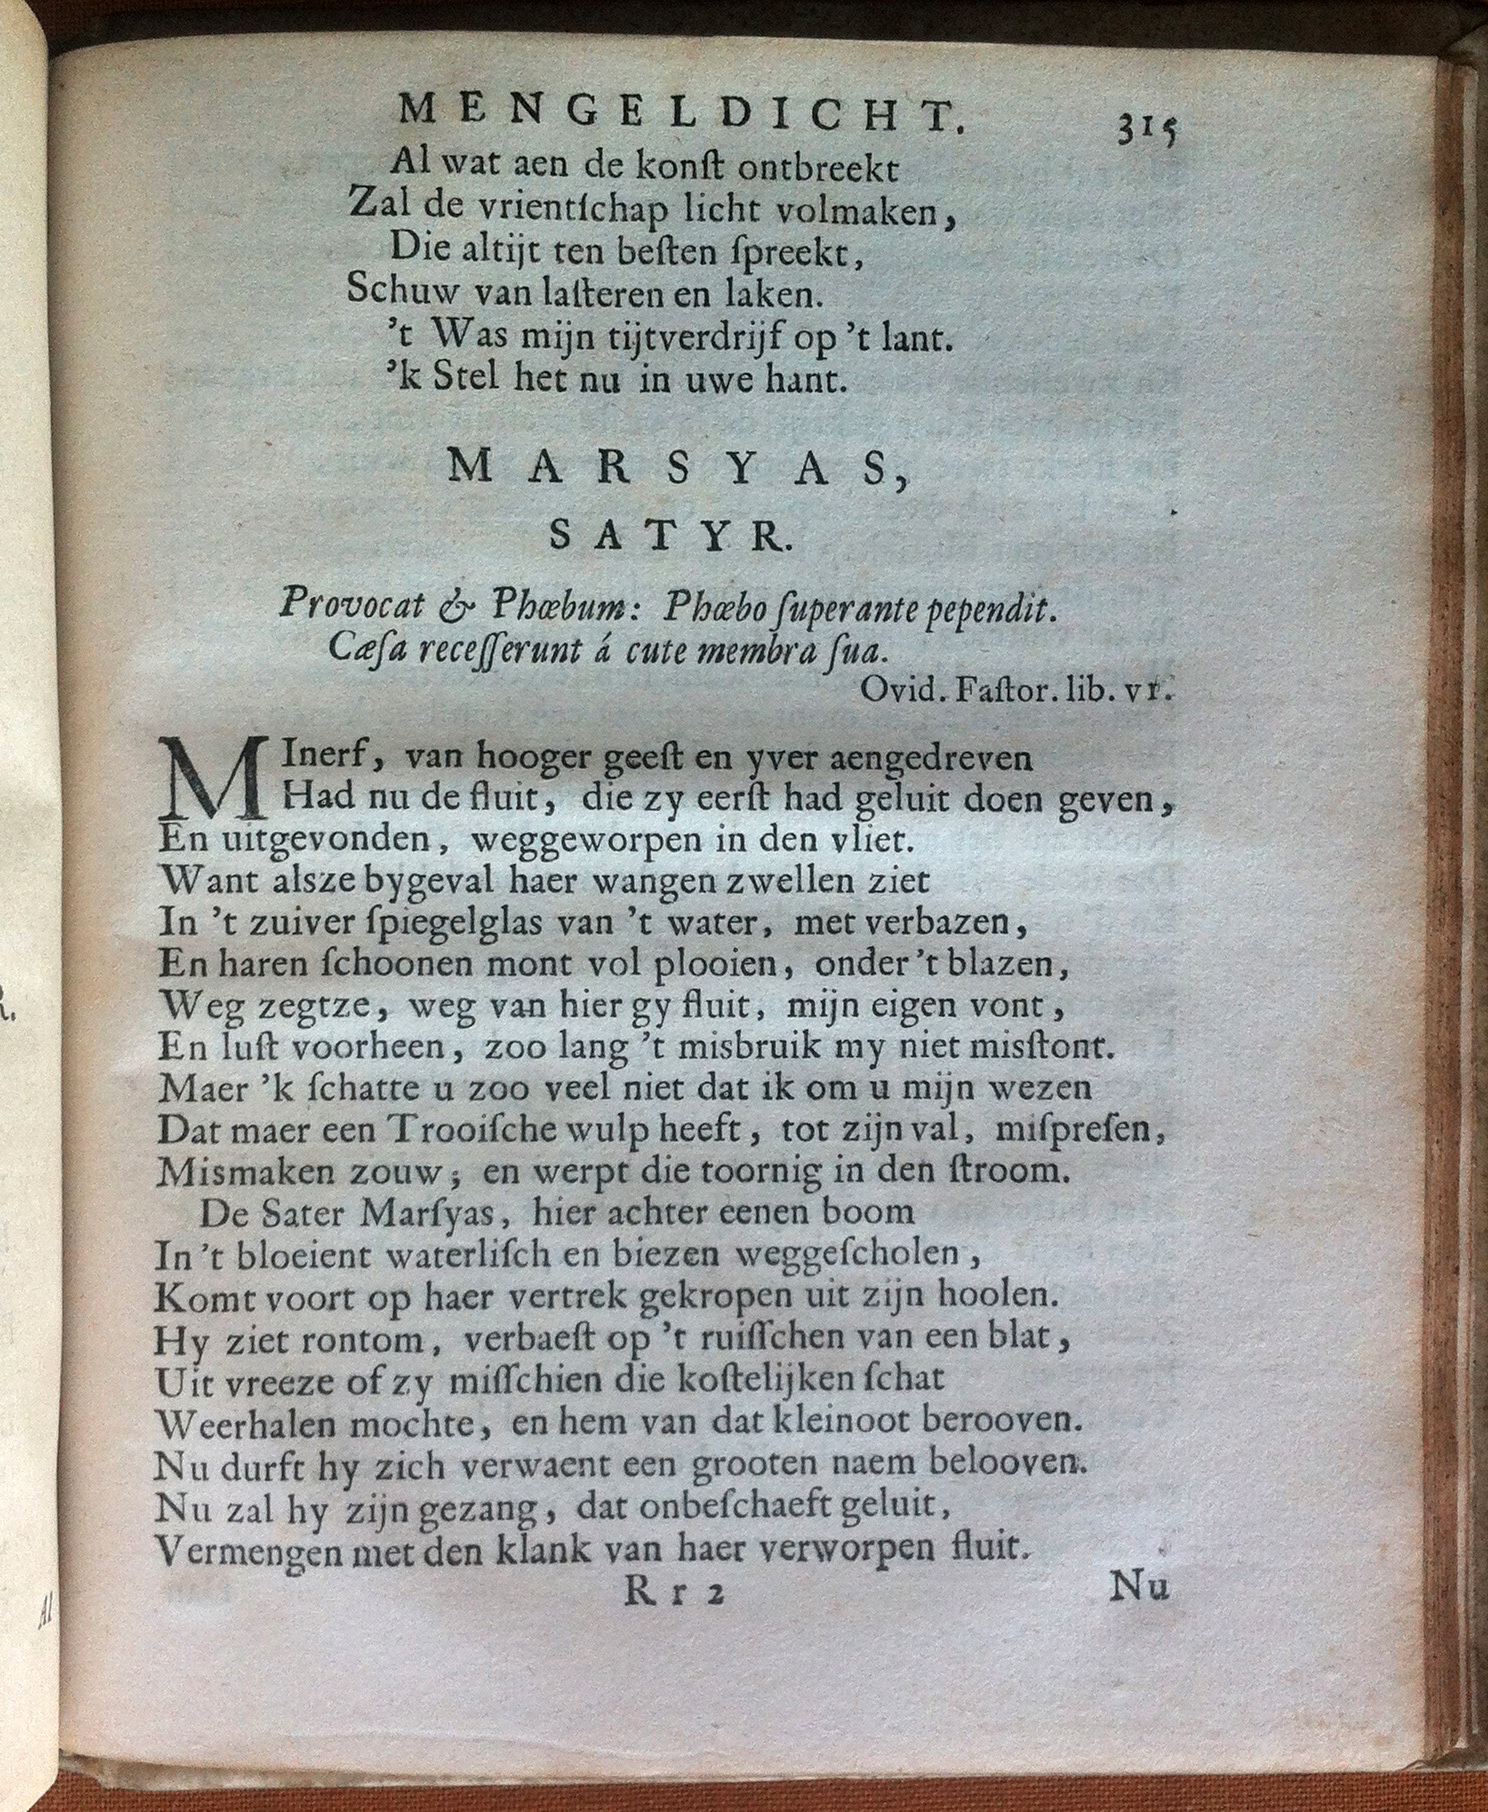 MENGELDICHT. 315
Al wat aen de konſt ontbreekt
Zal de vrientſchap licht volmaken,
Die altijt ten beſten ſpreekt,
Schuw van laſteren en laken.
't Was mijn tijtverdrijf op 't lant.
'k Stel het nu in uwe hant.
MARSYAS,
SATYR.
Provocat & Phœbum: Phœbo ſuperante pependit.
Cæſa receſſerunt á cute membra ſua.
Ovid. Faſtor. lib. VI.
MInerf, van hooger geeſt en yver aengedreven
Had nu de fluit, die zy eerſt had geluit doen geven,
En uitgevonden, weggeworpen in den vliet.
Want alsze bygeval haer wangen zwellen ziet
In 't zuiver ſpiegelglas van 't water, met verbazen,
En haren ſchoonen mont vol plooien, onder 't blazen,
Weg zegtze, weg van hier gy fluit, mijn eigen vont,
En luſt voorheen, zoo lang 't misbruik my niet misſtont.
Maer 'k ſchatte u zoo veel niet dat ik om u mijn wezen
Dat maer een Trooiſche wulp heeft, tot zijn val, miſpreſen,
Mismaken zouw; en werpt die toornig in den ſtroom.
De Sater Marſyas, hier achter eenen boom
In 't bloeient waterliſch en biezen weggeſcholen,
Komt voort op haer vertrek gekropen uit zijn hoolen.
Hy ziet rontom, verbaeſt op 't ruiſſchen van een blat,
Uit vreeze of zy miſſchien die koſtelijken ſchat
Weerhalen mochte, en hem van dat kleinoot berooven.
Nu durft hy zich verwaent een grooten naem belooven.
Nu zal hy zijn gezang, dat onbeſchaeft geluit,
Vermengen met den klank van haer verworpen fluit.
Rr 2 Nu
Al